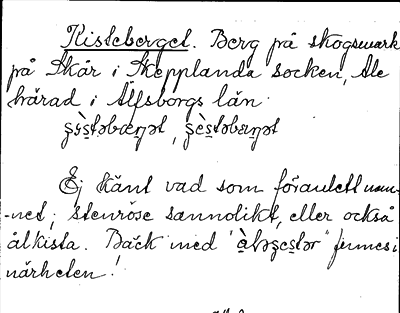 Kisteberget. Berg på skogsmark
på Skår i Skepplanda socken, Ale
härad i Älfsborgs län.
Ej känt vad som föranlett nam-
-net; stenröse sannolikt, eller också
ålkista. Bäck med " " finnes i
närheten!